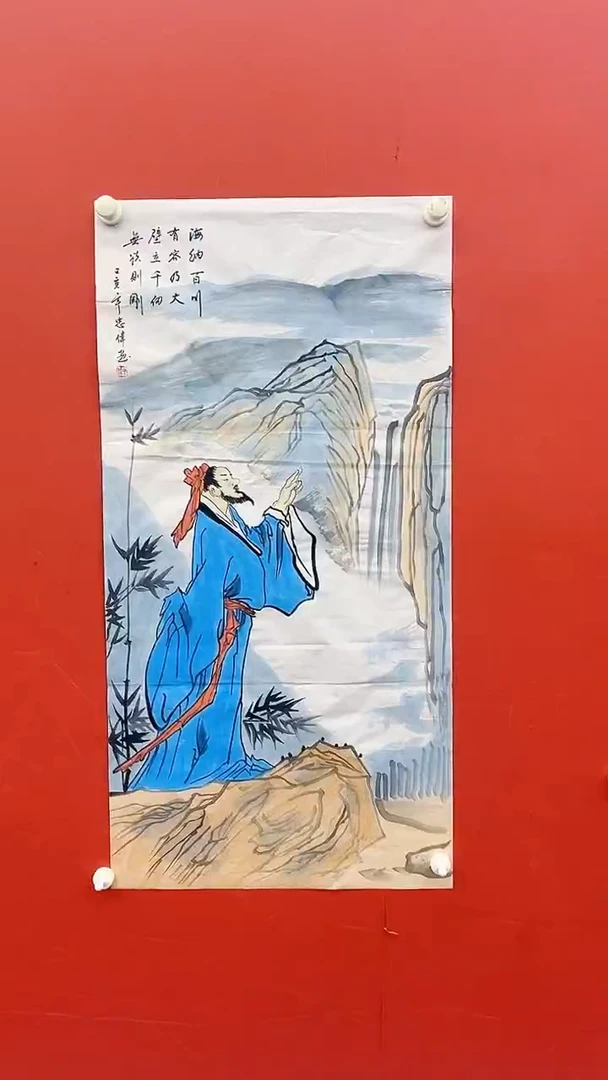 海纳百川
有容乃大
壁立千仞
無欲则刚
己亥年忠伟画